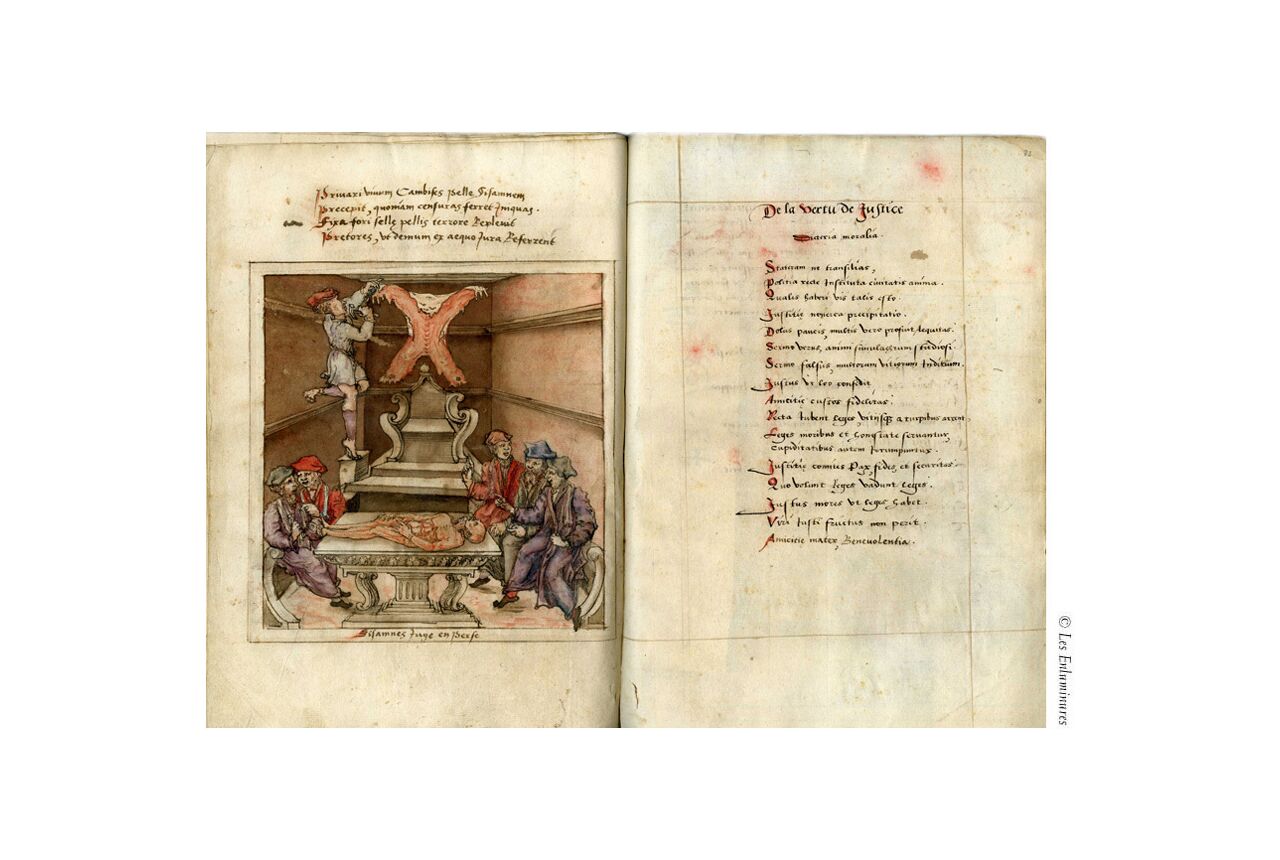 Privari vivum Cambises pelle Sisamnem
Precepit, quoniam censuras ferret Iniquas.
Fixa fori sellę pellis terrore Replevit
Pretores, vt demum ex aequo Iura Referrent
Sisamnes Iuge en Perse
De la Vertu de Justice
moralia.
Stateram ne transilias,
Politia recte Instituta civitatis anima.
Qualis haberi vis talis esto.
Iustitię noverca precipitatio.
Dolus paucis, multis vero prosunt Aequitas.
Sermo verus, animi simulacrum studiosi
Sermo falsus, multorum vitiorum Inditium.
Iustus vt leo confidit
Amicitię custos fidelitas.
Recta Iubent leges, vitiisque a turpibus arcent,
Leges moribus et honestate servantur,
Cupiditatibus autem Iterumpuntur.
Iustitię comites Pax, fides, et securitas.
Quo volunt Reges vadunt leges.
Iustus mores vt leges habet.
Viri Iusti fructus non perit.
Amicicię mater Benevolentia.
© Les Enluminures